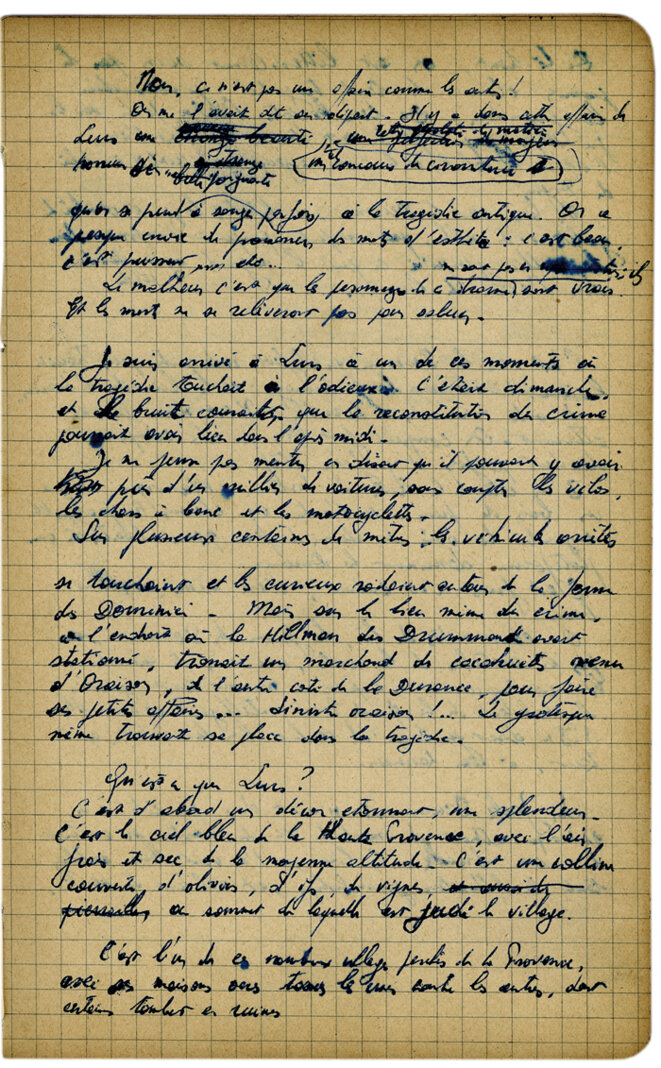 Non, ce n'est pas une affaire comme les autres !
On me l'avait dit au départ. Il y a, dans cette affaire de
Lurs une étrange beauté
qu'on se prend à songer parfois à la tragédie antique. On a
presque envie de prononcer des mots d'esthète : c'est beau,
c'est puissant, etc...
ne sont pas
Le malheur c'est que les personnages de ce drame sont vrais.
Et les morts ne se relèveront pas pour saluer.
Je suis arrivé à Lurs à un de ces moments où
la tragédie touchait à l'odieux. C'était dimanche,
et le bruit courait que la reconstitution du crime
pourrait avoir lieu dans l'après midi.
Je ne pense pas mentir en disant qu'il pouvait y avoir
près d'un millier de voitures, sans compter les vélos,
les chars à bancs et les motocyclettes.
Sur plusieurs centaines de mètres, les véhicules arrêtés
se touchaient et les curieux rodaient autour de la ferme
des Dominici. Mais sur le lieu même du crime,
à l'endroit où la Hillman des Drummond avait
stationné, trônait un marchand de cacahuètes venu
d'Oraison, de l'autre coté de la Durance, pour faire
ses petites affaires... Sinistre oraison !... Le grotesque
même trouvait sa place dans la tragédie.
Qu'est ce que Lurs ?
C'est d'abord un décor étonnant, une splendeur.
C'est le ciel bleu de la Haute Provence, avec l'air
frais et sec de la moyenne altitude. C'est une colline
couverte d'oliviers, d'ifs, de vignes et aussi de
pierrailles au sommet de laquelle est juché le village.
C'est l'un de ces nombreux villages perdus de la Provence,
avec ses maisons tassées les unes contre les autres, dont
certaines tombent en ruines